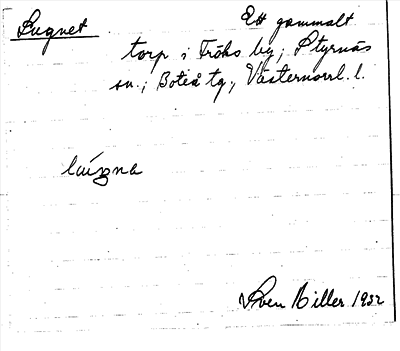 Lugnet Ett gammalt
torp i Fröks by, Styrnäs
sn., Boteå tg., Västernorrl. l.
Sven Hiller 1932